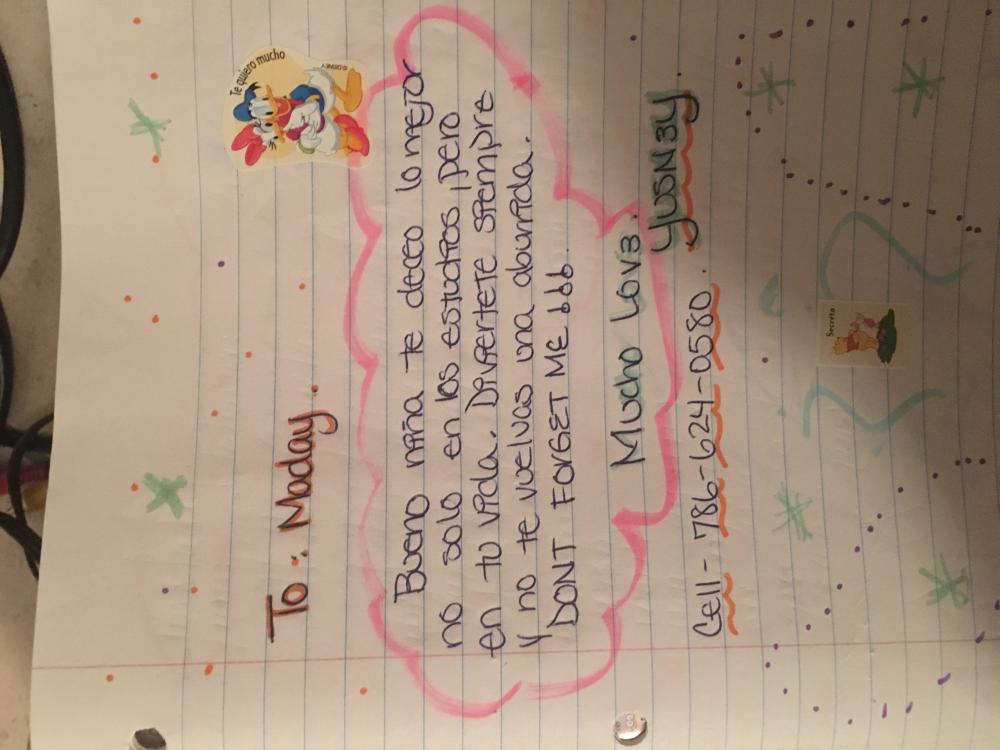 Te quiero mucho
© DISNEY
To: Maday.
Bueno niña te deceo lo mejor
no solo en los estudios, pero
en tu vida. Diviertete siempre
y no te vuelvas una aburrida.
DONT FORGET ME 666..
Mucho Lov3.
YUSN3Y.
Cell - 786-624-0580.
Secreto